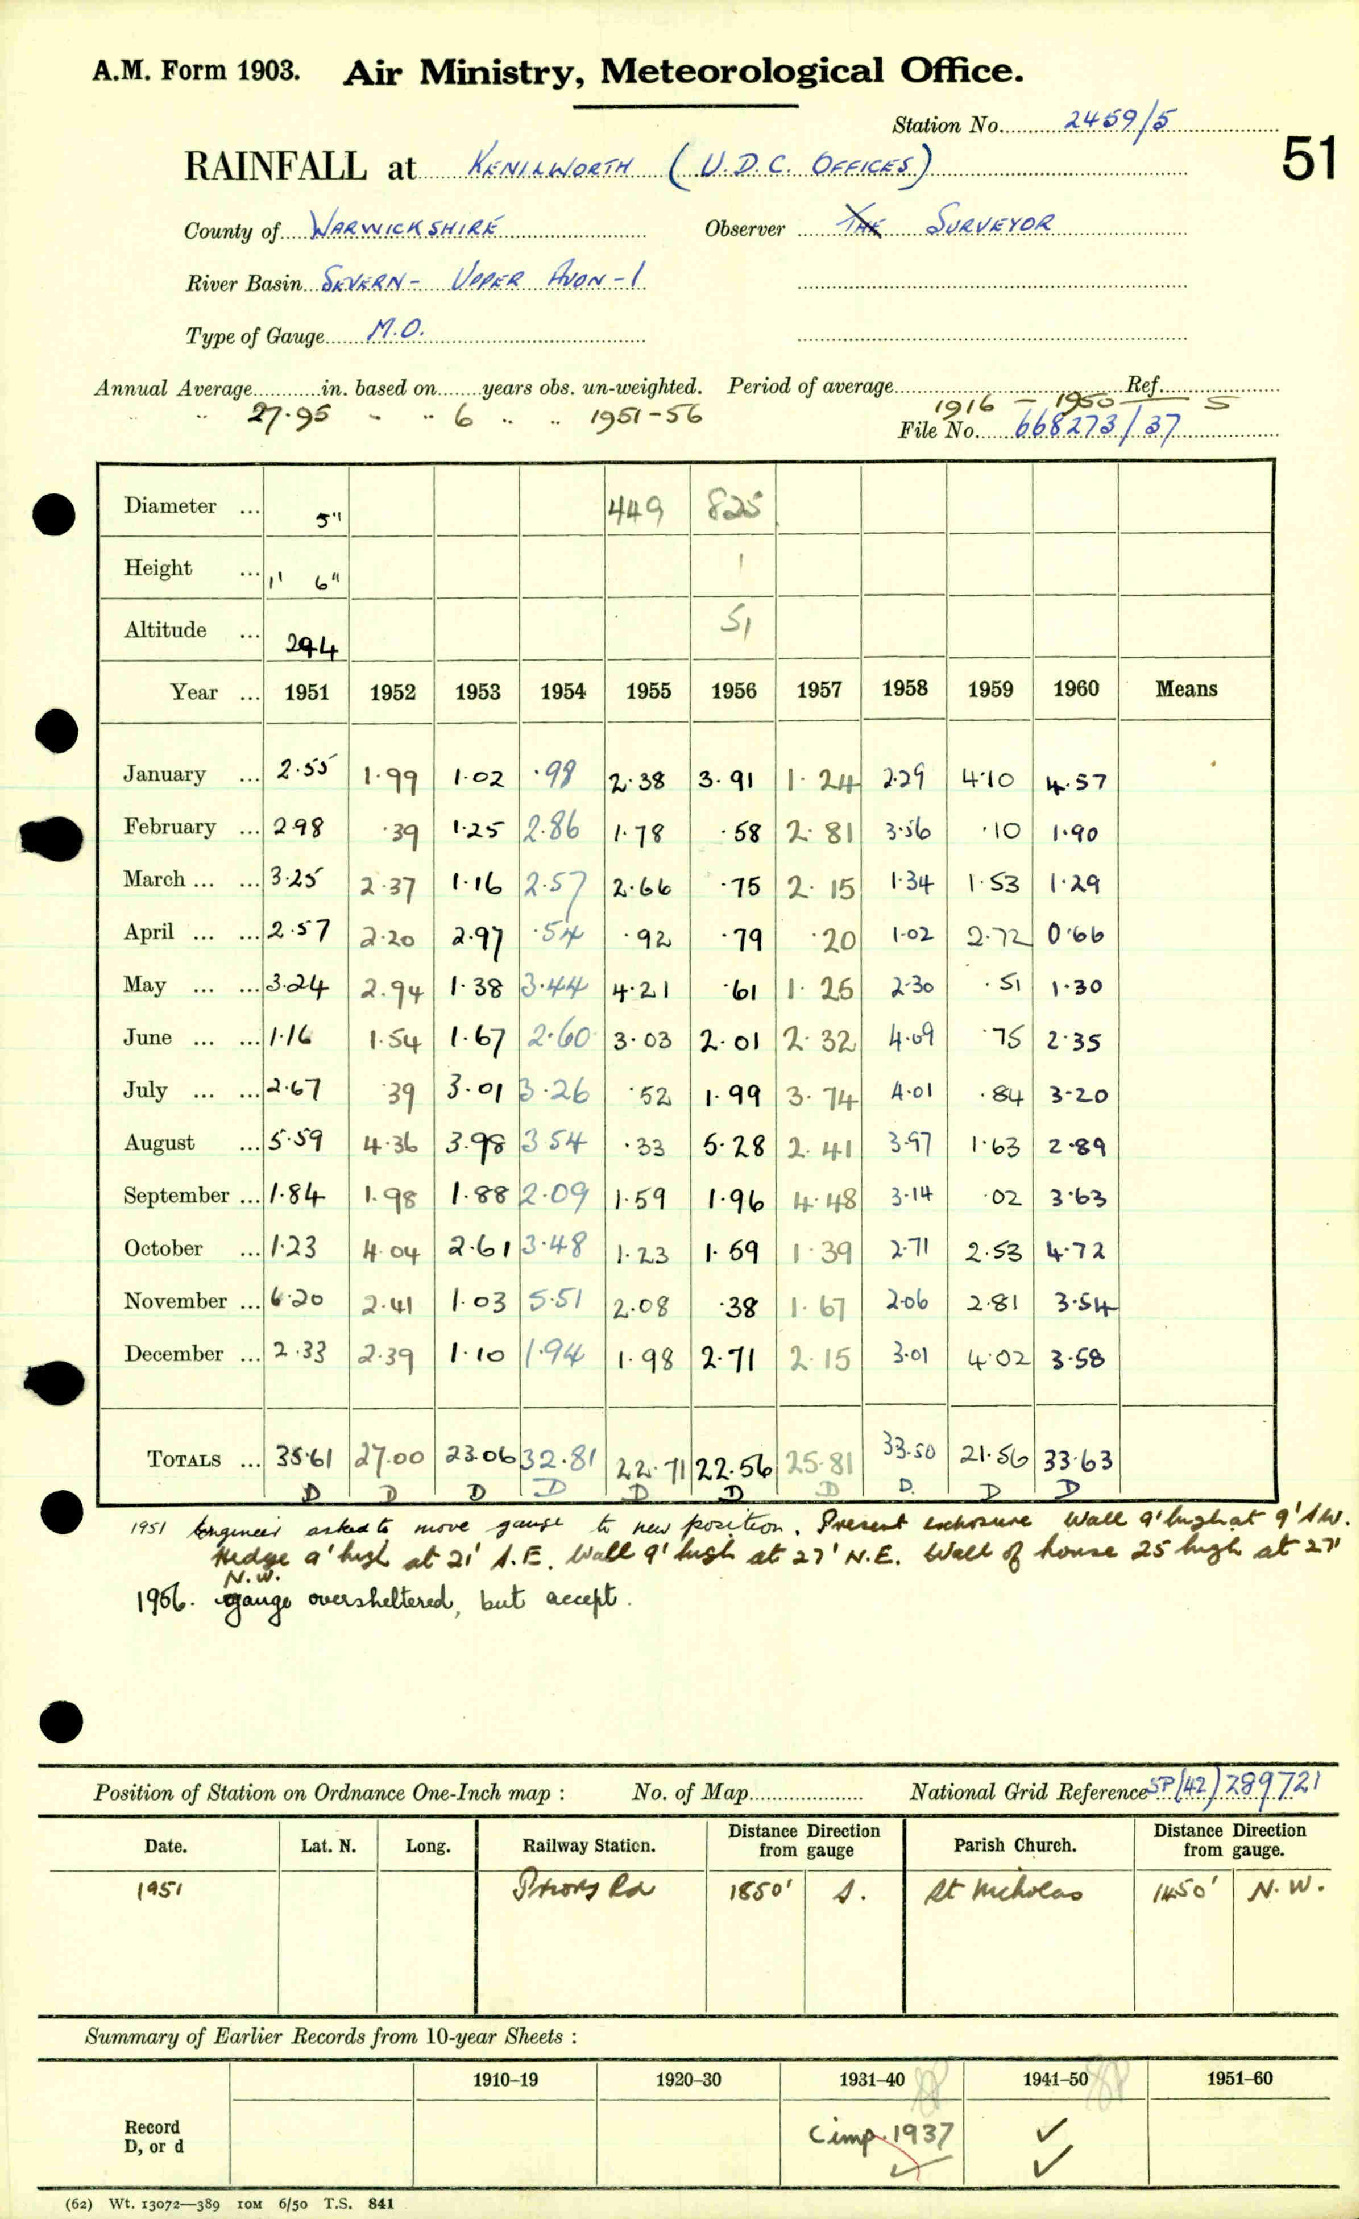 A.M. Form 1903. Air Ministry, Meteorological Office.
Station No. 2459/5
51
RAINFALL at KENILWORTH (U.D.C. OFFICES)
County of WARWICKSHIRE Observer THE SURVEYOR
River Basin SEVERN - UPPER AVON - 1
Type of Gauge M.O.
Annual Average in. based on years obs. un-weighted. Period of average Ref.
" " 27.95 " " 6 " " 1951-56 1916 - 1950 5
File No. 668273/37
Diameter ... 5" 449 825
Height ... 1' 6" 1
Altitude ... 294 51
Year ... 1951 1952 1953 1954 1955 1956 1957 1958 1959 1960 Means
January ... 2.55 1.99 1.02 .98 2.38 3.91 1.24 2.29 4.10 4.57
February ... 2.98 .39 1.25 2.86 1.78 .58 2.81 3.56 .10 1.90
March ... ... 3.25 2.37 1.16 2.57 2.66 .75 2.15 1.34 1.53 1.29
April ... ... 2.57 2.20 2.97 .54 .92 .79 .20 1.02 2.72 0.66
May ... ... 3.24 2.94 1.38 3.44 4.21 .61 1.25 2.30 .51 1.30
June ... ... 1.16 1.54 1.67 2.60 3.03 2.01 2.32 4.09 .75 2.35
July ... ... 2.67 .39 3.01 3.26 .52 1.99 3.74 4.01 .84 3.20
August ... 5.59 4.36 3.98 3.54 .33 5.28 2.41 3.97 1.63 2.89
September ... 1.84 1.98 1.88 2.09 1.59 1.96 4.48 3.14 .02 3.63
October ... 1.23 4.04 2.61 3.48 1.23 1.59 1.39 2.71 2.53 4.72
November ... 6.20 2.41 1.03 5.51 2.08 .38 1.67 2.06 2.81 3.54
December ... 2.33 2.39 1.10 1.94 1.98 2.71 2.15 3.01 4.02 3.58
TOTALS ... 35.61 27.00 23.06 32.81 22.71 22.56 25.81 33.50 21.56 33.63
D D D D D D D D. D D
1951 Engineer asked to move gauge to new position. Present enclosure Wall 9' high at 9' S.W.
Hedge 9' high at 21' S.E. Wall 9' high at 27' N.E. Wall of house 25 high at 27'
N.W.
1956. gauge oversheltered, but accept.
Position of Station on Ordnance One-Inch map : No. of Map National Grid Reference SP(42)289721
Date. Lat. N. Long. Railway Station. Distance Direction from gauge Parish Church. Distance Direction from gauge.
1951 Priory Rd 1850' S. St Nicholas 1450' N.W.
Summary of Earlier Records from 10-year Sheets :
1910–19 1920–30 1931–40 1941–50 1951–60
Record D, or d Cimp. 1937 ✓ ✓ ✓
(62) Wt. 13072—389 10M 6/50 T.S. 841